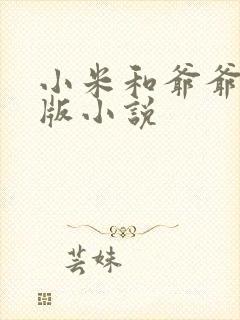 小米和爷爷
版小说
芸妹